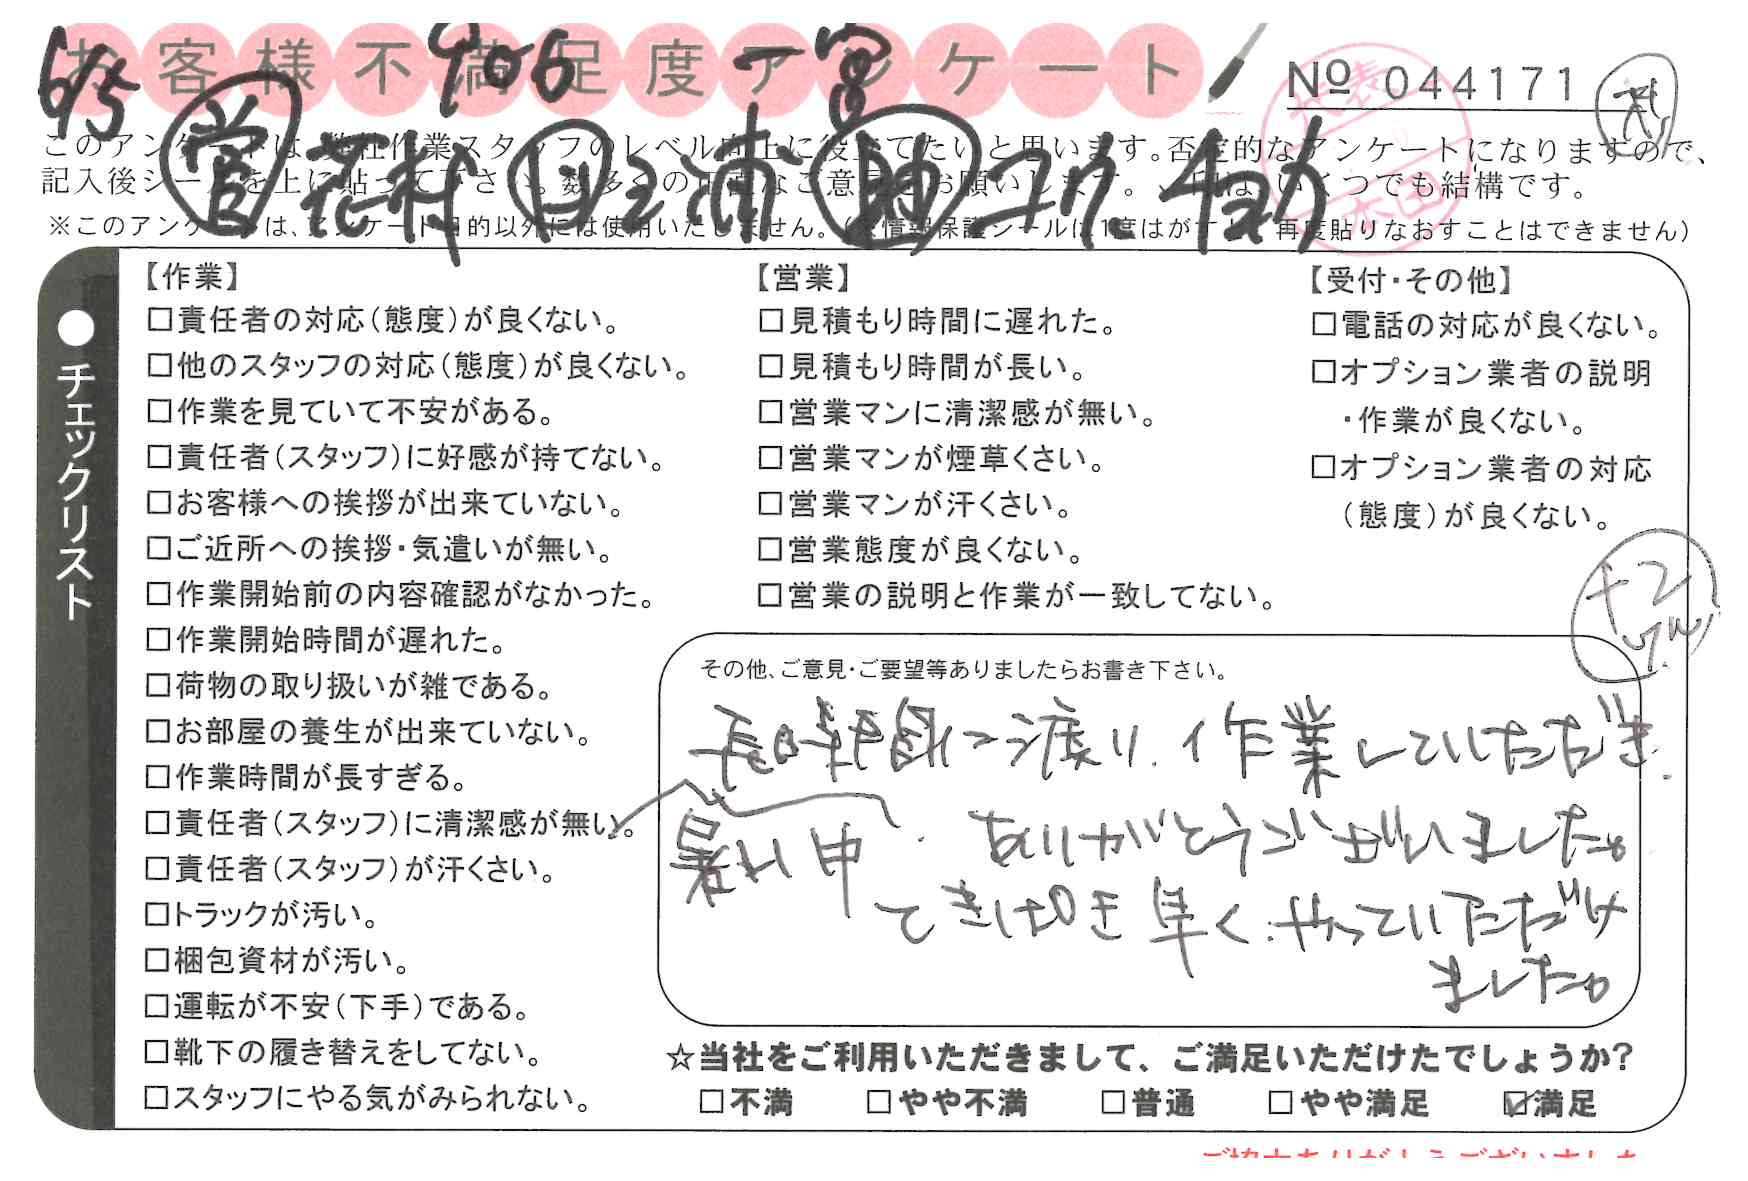 お客様不満足度アンケート
6/5 906 一宮
No 044171
このアンケートは、弊社作業スタッフのレベル向上に役立てたいと思います。否定的なアンケートになりますので、
記入後シールを上に貼って下さい。数多くの正直なご意見をお願いします。レ印は、いくつでも結構です。
※このアンケートは、アンケート目的以外には使用いたしません。(※情報保護シールは1度はがすと、再度貼りなおすことはできません)
営 花村 三浦
チェックリスト
【作業】
□責任者の対応(態度)が良くない。
□他のスタッフの対応(態度)が良くない。
□作業を見ていて不安がある。
□責任者(スタッフ)に好感が持てない。
□お客様への挨拶が出来ていない。
□ご近所への挨拶・気遣いが無い。
□作業開始前の内容確認がなかった。
□作業開始時間が遅れた。
□荷物の取り扱いが雑である。
□お部屋の養生が出来ていない。
□作業時間が長すぎる。
□責任者(スタッフ)に清潔感が無い。
□責任者(スタッフ)が汗くさい。
□トラックが汚い。
□梱包資材が汚い。
□運転が不安(下手)である。
□靴下の履き替えをしてない。
□スタッフにやる気がみられない。
【営業】
□見積もり時間に遅れた。
□見積もり時間が長い。
□営業マンに清潔感が無い。
□営業マンが煙草くさい。
□営業マンが汗くさい。
□営業態度が良くない。
□営業の説明と作業が一致してない。
【受付・その他】
□電話の対応が良くない。
□オプション業者の説明
・作業が良くない。
□オプション業者の対応
(態度)が良くない。
その他、ご意見・ご要望等ありましたらお書き下さい。
長時間に渡り、作業していただき
暑い中、ありがとうございました。
てきぱき早くやっていただけ
ました。
☆当社をご利用いただきまして、ご満足いただけたでしょうか?
□不満 □やや不満 □普通 □やや満足 ☑満足
ご協力ありがとうございました